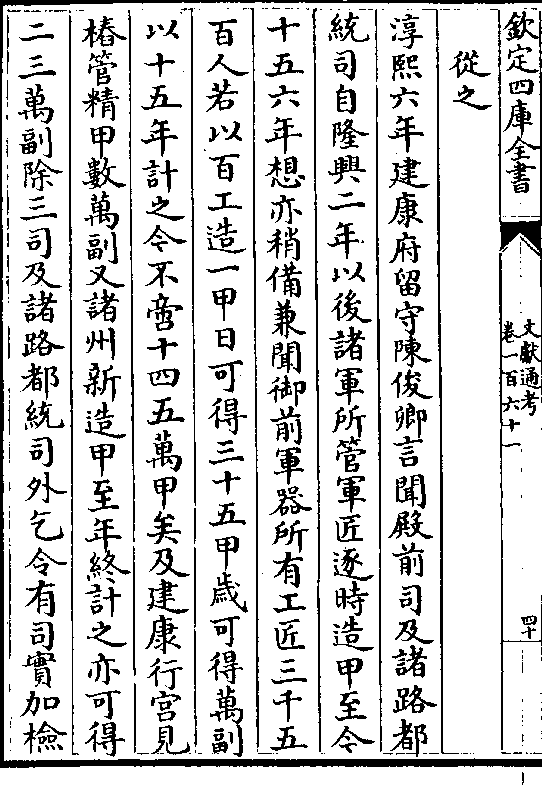 欽定四庫全書
文獻通考
卷一百六十一
四十
從之
淳熙六年建康府留守陳俊卿言聞殿前司及諸路都
統司自隆興二年以後諸軍所管軍匠逐時造甲至今
十五六年想亦稍備兼聞御前軍器所有工匠三千五
百人若以百工造一甲日可得三十五甲歲可得萬副
以十五年計之今不啻十四五萬甲矣及建康行宫見
樁管精甲數萬副又諸州新造甲至年終計之亦可得
二三萬副除三司及諸路都統司外乞令有司實加檢